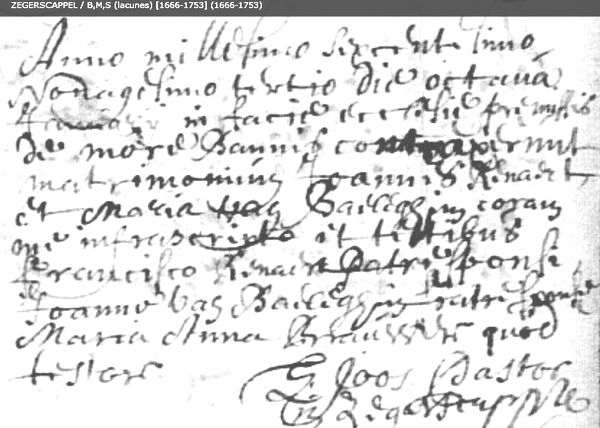 ZEGERSCAPPEL / B,M,S (lacunes) [1666-1753] (1666-1753)
Anno millesimo sexcentesimo
Nonagesimo tertio die octava
Januarij in facie ecclesie premissis
de more Bannis contraxerunt
matrimonium Joannis Renaert
et Maria van Baeleghim coram
me infrascripto et testibus
francisco Renaert Patre sponsi
Joanne van Baeleghim fratre sponse
Maria Anna quod
testor
Joos Pastor
in Zegerscappel